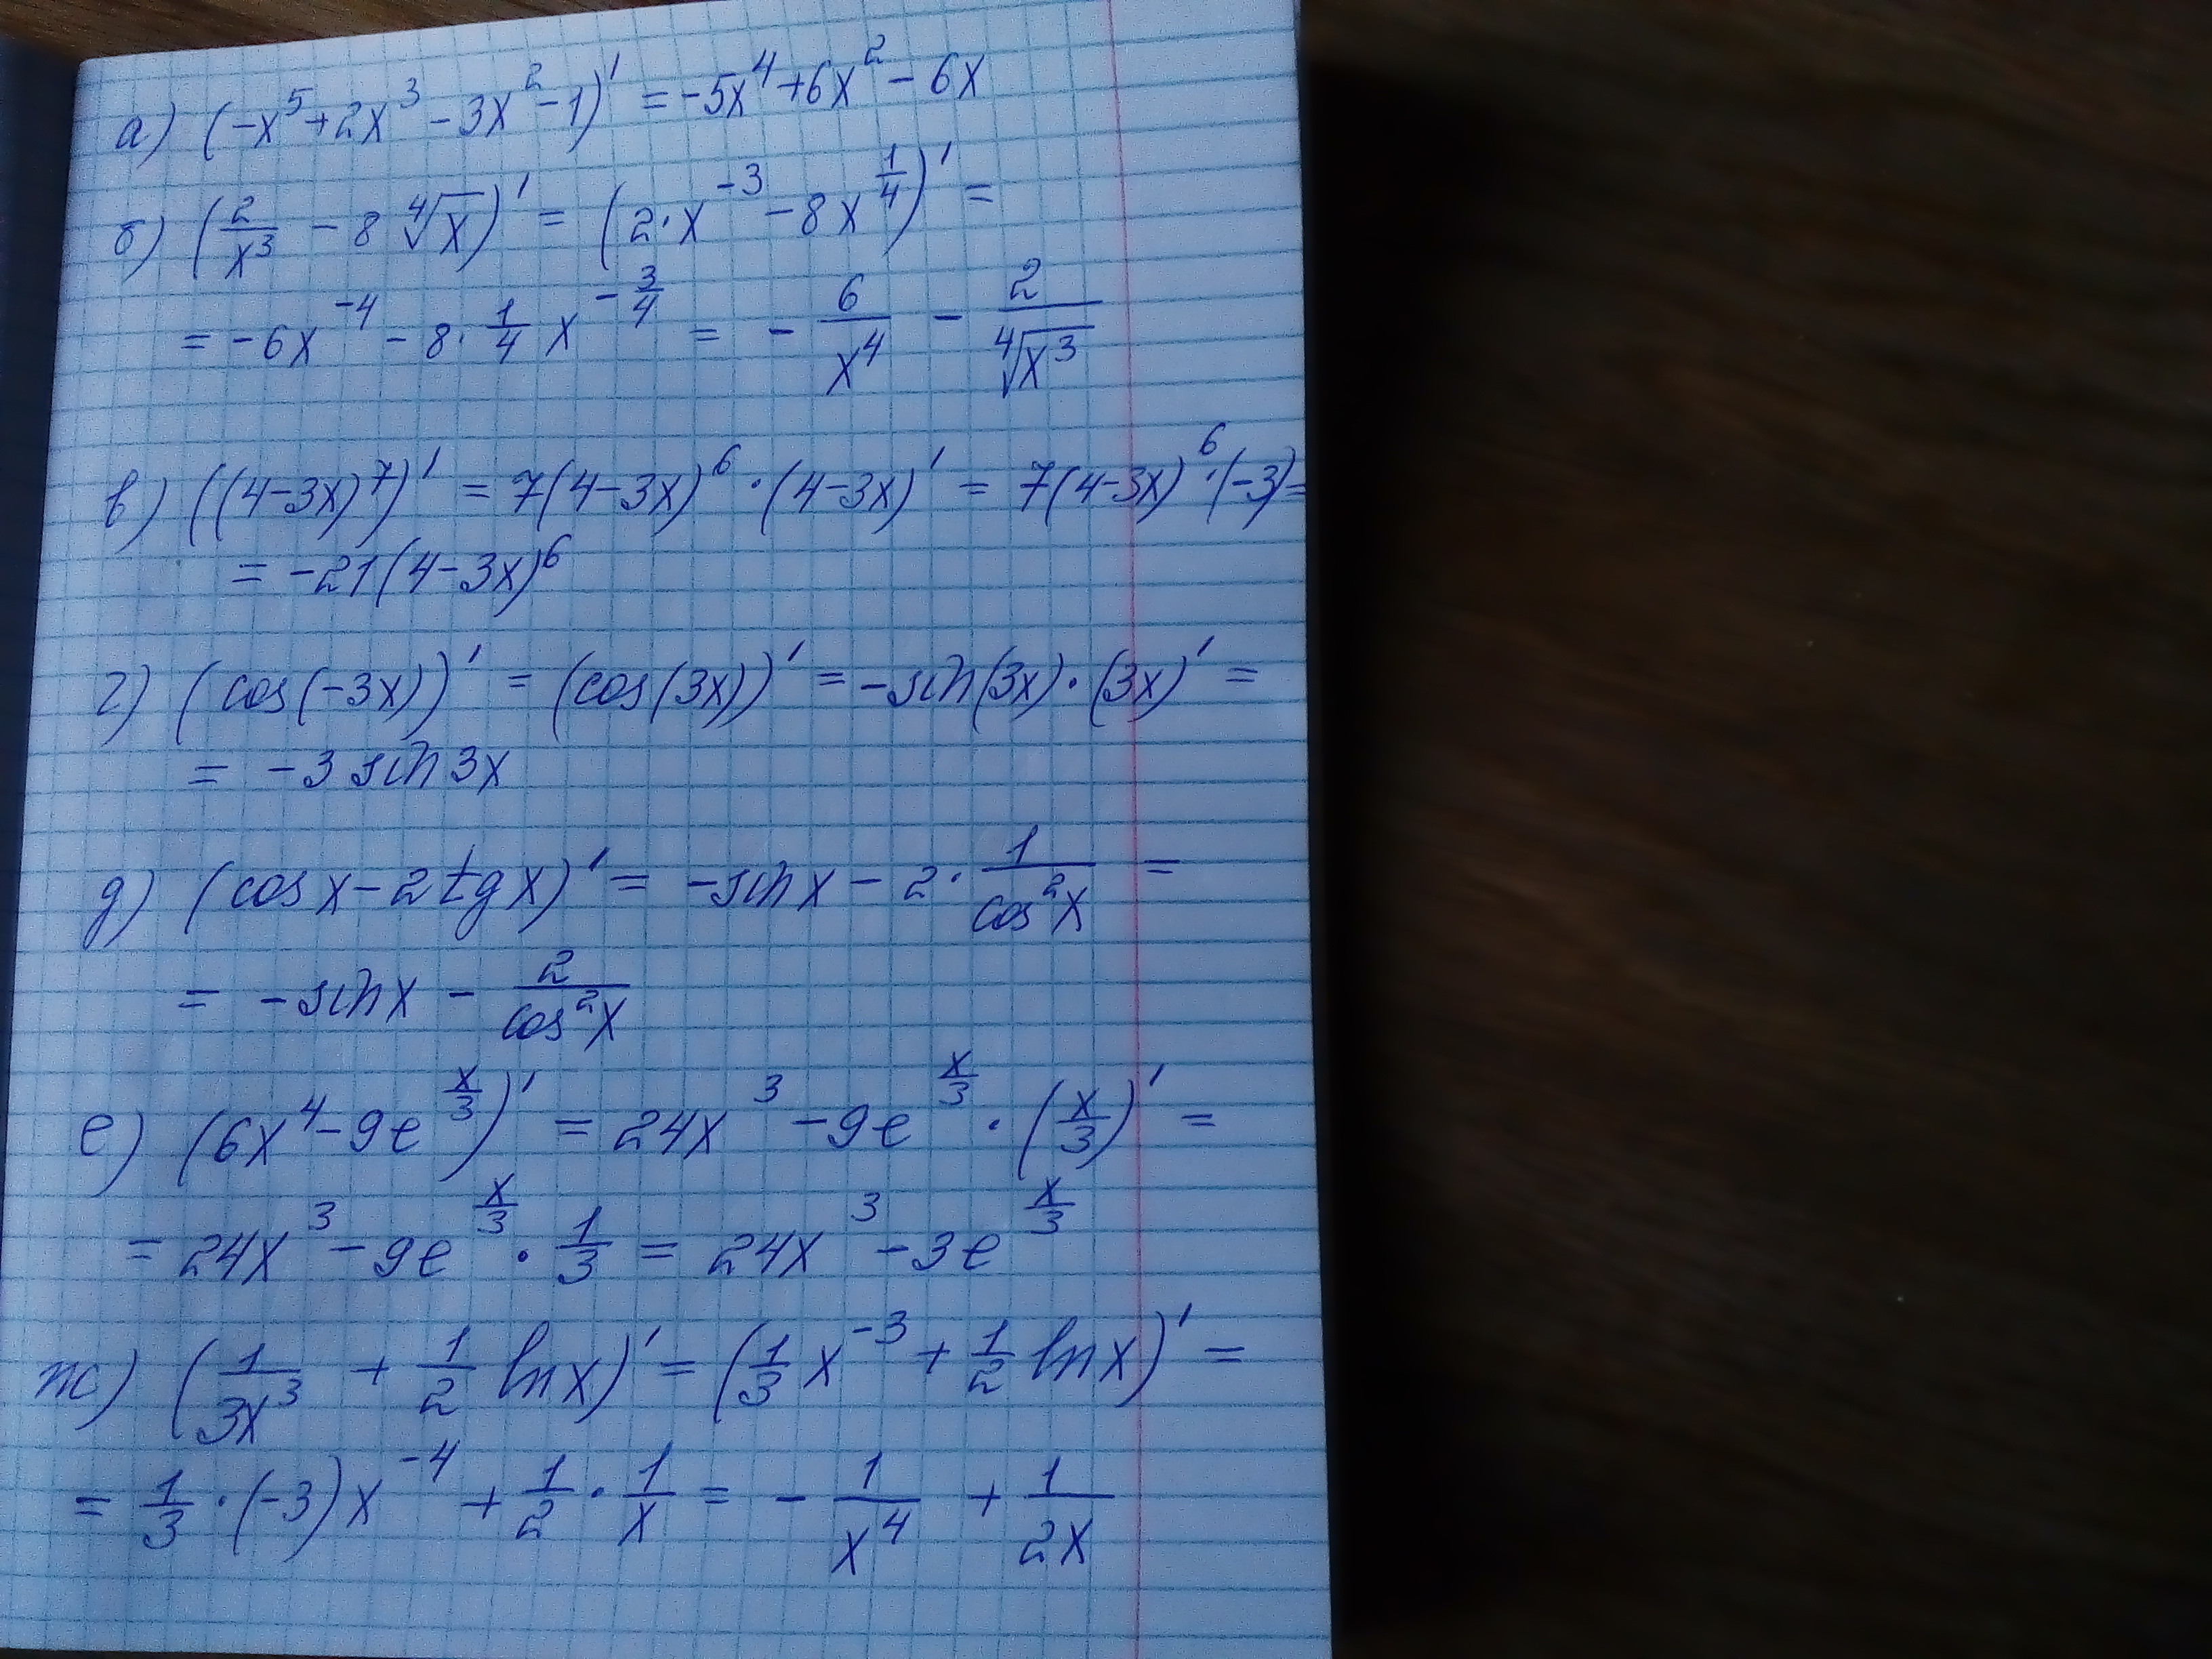 а) (-x⁵+2x³-3x²-1)' = -5x⁴+6x²-6x
б) (2/x³ - 8 ∜x)' = (2·x⁻³ - 8x^(1/4))' =
= -6x⁻⁴ - 8·1/4 x^(-3/4) = - 6/x⁴ - 2/∜x³
в) ((4-3x)⁷)' = 7(4-3x)⁶·(4-3x)' = 7(4-3x)⁶·(-3)=
= -21(4-3x)⁶
г) (cos(-3x))' = (cos(3x))' = -sin(3x)·(3x)' =
= -3 sin3x
д) (cosx-2tgx)' = -sinx - 2·1/cos²x =
= -sinx - 2/cos²x
е) (6x⁴-9e^(x/3))' = 24x³ - 9e^(x/3)·(x/3)' =
= 24x³ - 9e^(x/3)·1/3 = 24x³ - 3e^(x/3)
ж) (1/3x³ + 1/2 lnx)' = (1/3 x⁻³ + 1/2 lnx)' =
= 1/3·(-3)x⁻⁴ + 1/2·1/x = - 1/x⁴ + 1/2x